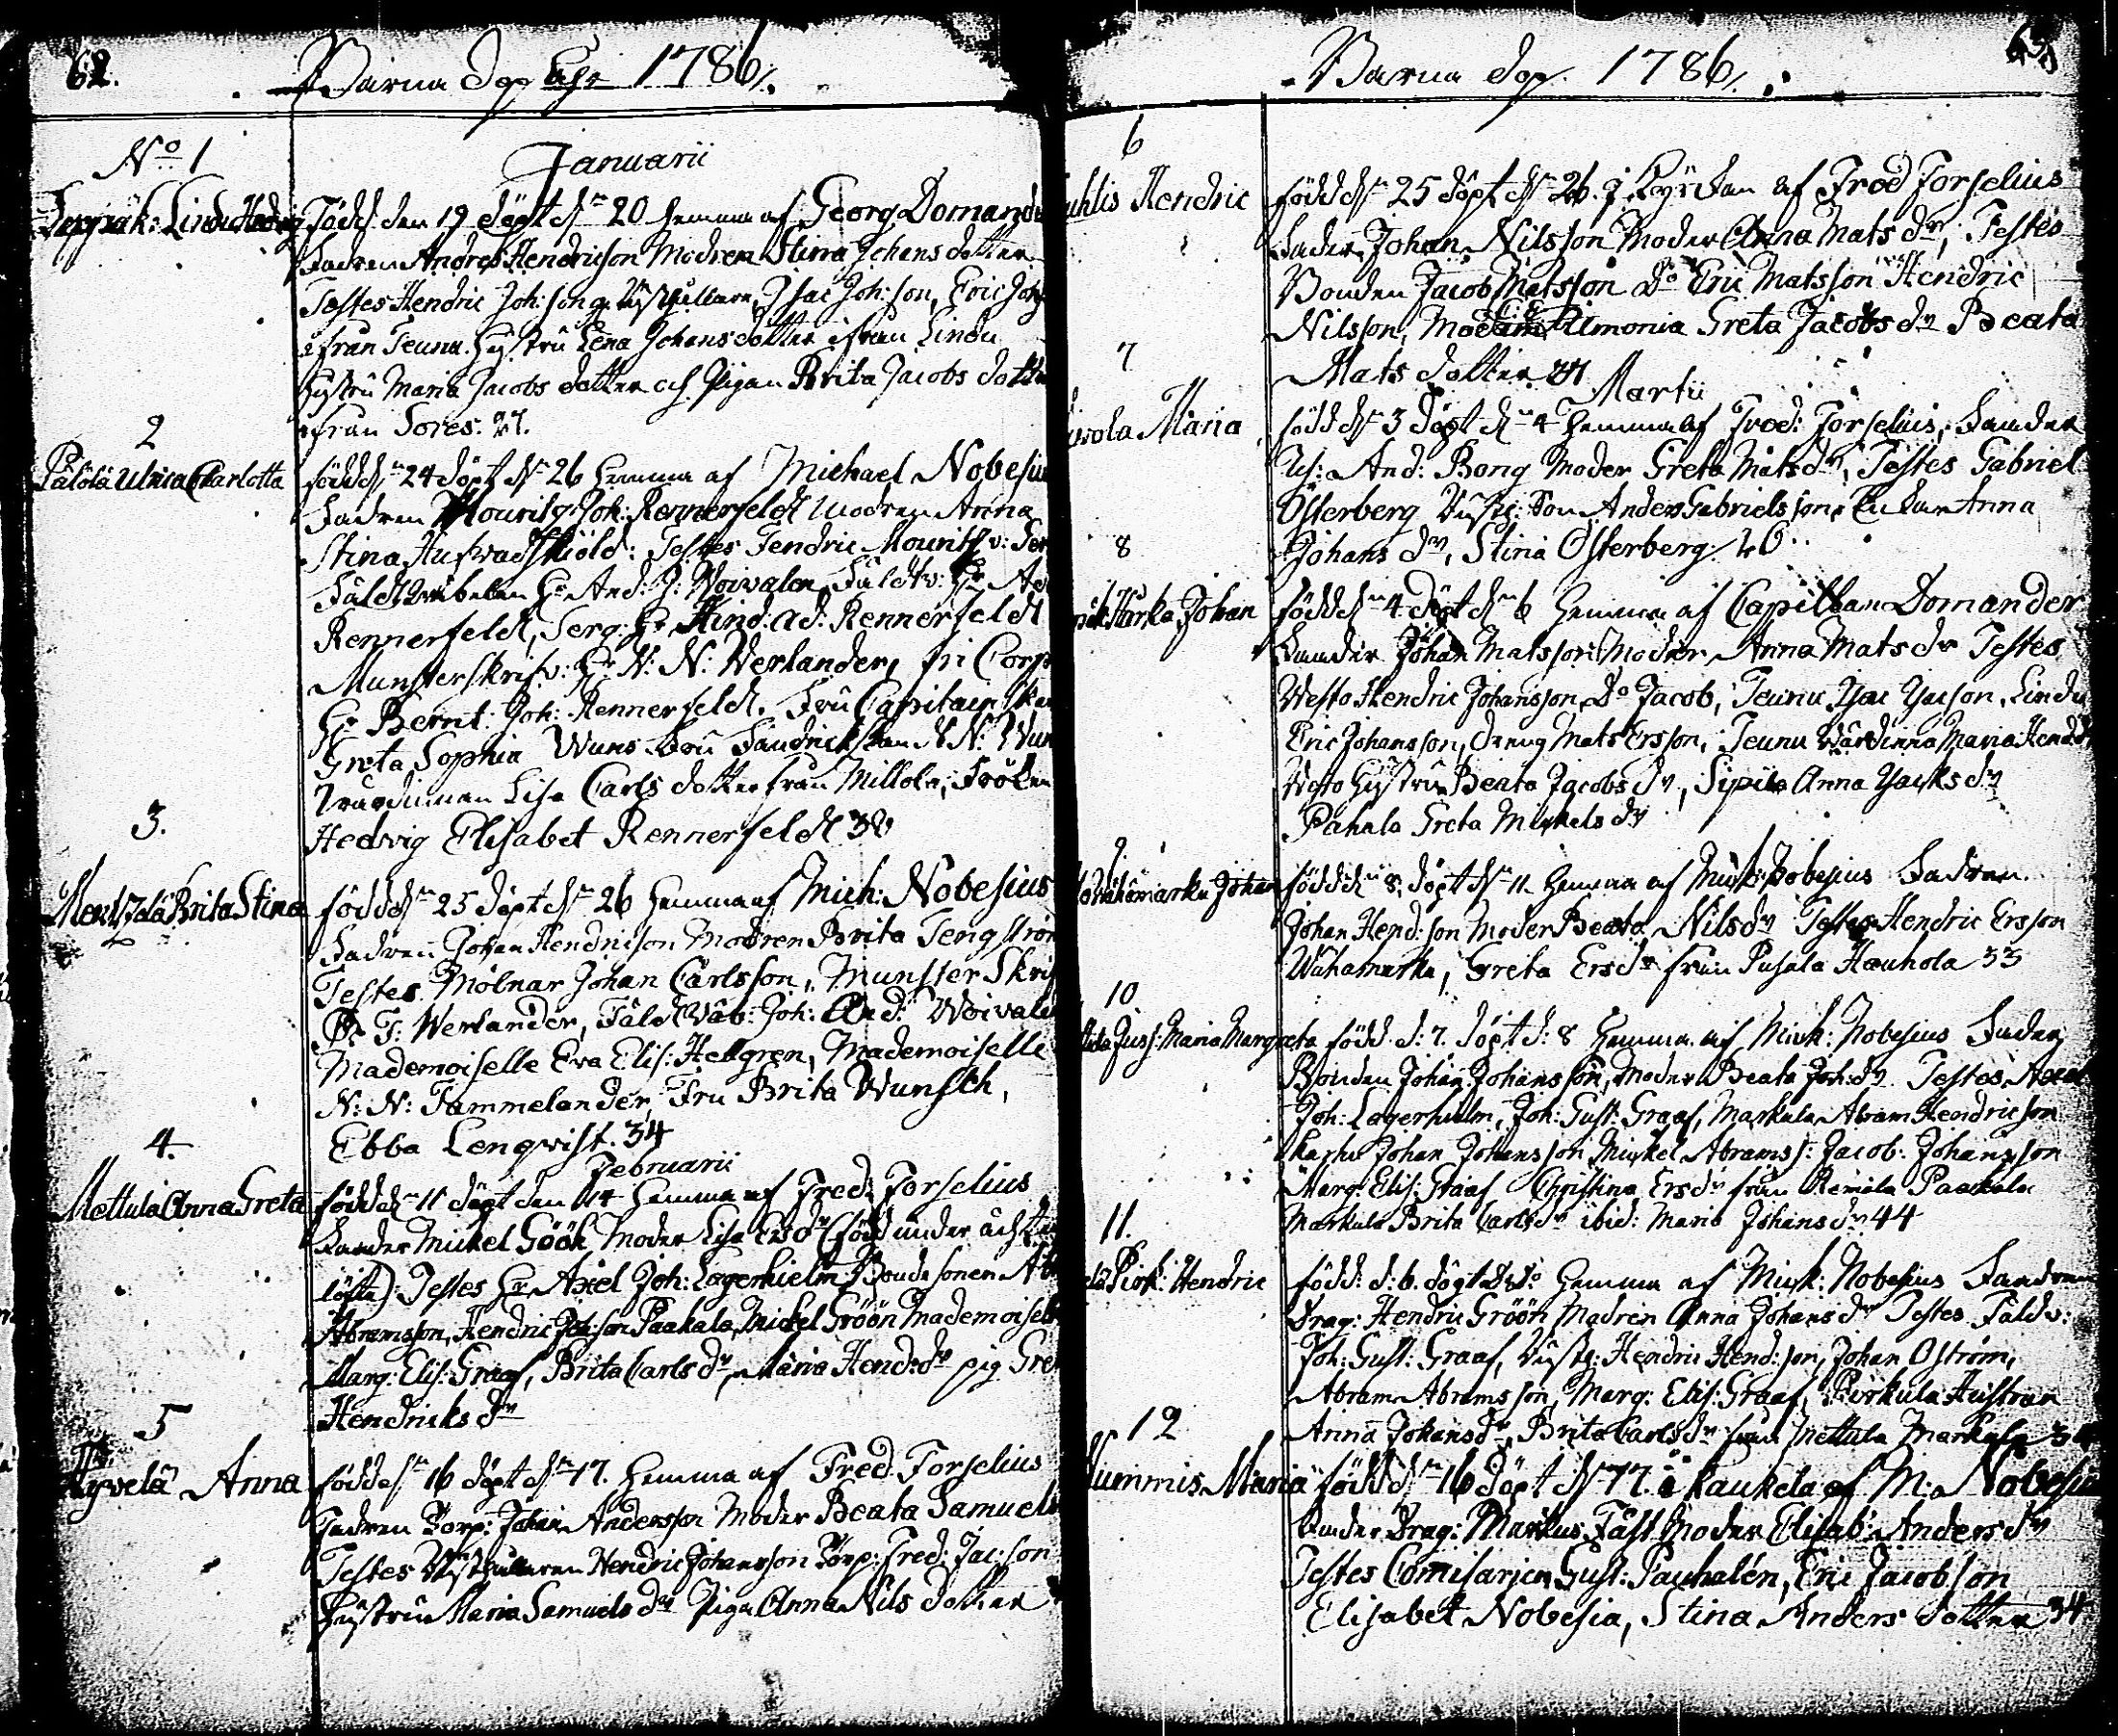 62.
Barna dop Åhr 1786.
No 1
Januarii
Lindu Hedvig Född den 19 döpt dn 20 hemma af Georg Domand
Fadren Anders Hendricson Modren Stina Johans dotter
Testes Hendric Joh:son g. Isac Joh:son, Eric Joh
ifrån Teunu. Hustru Lena Johansdotter ifrån Lindu
Hustru Maria Jacobs dotter och Pigan Brita Jacobs dotte
ifrån Sores. 27.
2
Pälölä Ulrica Charlotta född dn 24 döpt dn 26 hemma af Michael Nobesiu
Fadren Mouritz Joh: Rennerfeldt Modren Anna
Stina Hufvadskiöld: Testes Fendric Mouritz v:
Fäldtväbelen Hr And: J: Woivalen, Fäldtv: Hr
Rennerfeldt, Serg: Hr Hind: Ad: Rennerfeldt
Munsterskrifv: Hr N: N: Werlander, fri Corp
Hr Bernt: Joh: Rennerfeldt. Fru Capitain
Greta Sophia Wuns Fru N: Wun
Lisa Carls dotter från Millola, Fröken
Hedvig Elisabet Rennerfeldt 38
3.
Mentzelä Brita Stina född dn 25 döpt dn 26 hemma af Mich: Nobesius
Fadren Johan Hendricson Modren Brita Tengström
Testes Mölnar Johan Carlsson, Munster Skrif
Hr F: Werlander, Fäldtväb: Joh: And: Woivale
Mademoiselle Eva Elis: Hellgren, Mademoiselle
N: N: Tammelander, Fru Brita Wunsch,
Ebba Lenqvist. 34
4.
Februarii
Mettula Anna Greta född dn 11 döpt den 14 hemma af Fred: Forselius
Fader Mickel Göök Moder Lisa Ersdr (född under ächten
löfte) Testes Hr Axel Joh: Lagerhielm Bondesonen Ab
Abramsson, Hendric Joh:son Paakala, Mickel Gröön Mademoisell
Marg: Elis: Graaf, Brita Carls dr, Maria Hend: dr pig Gre
Hendricks dr
5
Hyvelä Anna född dn 16 döpt dn 17. hemma af Fred: Forselius
Fadren Torp: Johan Andersson Moder Beata Samuels
Testes Hendric Johansson Torp: Fred: Jac:son
Hustrun Maria Samuels dr Pigan Anna Nils dotter
63
Barna dop. 1786.
6
Hendric född dn 25 döpt dn 26. i Kyrckan af Fred Forselius
Fader Johan Nilsson Moder Anna Mats dr, Testes
Bonden Jacob Matsson Do Eric Matsson Hendric
Nilsson, Madam Greta Jacobs dr Beata
Mats dotter 27
7
Martii
Maria född dn 3 döpt dn 4 hemma af Fred: Forselius, Fander
And: Bong Moder Greta Mats dr, Testes Gabriel
Österberg Son Anders Gabrielsson, Enckan Anna
Johans dr, Stina Österberg 26
8
Harka Johan född dn 4 döpt dn 6 hemma af Capellan Domander
Fander Johan Matsson Moder Anna Mats dr Testes
Westo Hendric Johansson Do Jacob, Teunu Isac Isacson, Lindu
Eric Johansson, dreng Mats Ersson, Teunu Värdinna Maria Hend dr
Westo Hustrun Beata Jacobs dr, Sipilä Anna Isacks dr
Pahala Greta Mickels dr
9
Johan född dn 8. döpt dn 11. hemma af Mick: Nobesius Fadren
Johan Hend:son Moder Beata Nils dr Testes Hendric Ersson
Wähämarka, Greta Ers dr från Pusala Hauhola 33
10
Maria Margreta född d: 7. döpt d: 8 hemma af Mick: Nobesius Fader
Bonden Johan Johansson, Moder Beata Joh: dr Testes Axel
Joh: Lagerhielm, Joh: Gust: Graaf, Markula Abram Hendricson
Karhu Johan Johansson Mickel Abramss: Jacob: Johansson
Marg: Elis: Graaf Christina Ers dr från Remälä Paakala
Markula Brita Carls dr ibid: Maria Johans dr 44
11.
Piok: Hendric född: d: 6. döpt d: do hemma af Mick: Nobesius Fadren
Drag: Hendric Gröön Modren Anna Johans dr Testes Fäldv:
Joh: Gust: Graaf, Hendric Hend:son, Johan Oström,
Abram Abramsson, Marg: Elis: Graaf, Pirkula Hustrun
Anna Johans dr, Brita Carls dr från Mettula Markula
12
Nummis Maria född dn 16 döpt dn 17. i Kaukela af M: Nobesiu
Fander Drag: Markus Fast Moder Elisab: Anders dr
Testes Comisarien Gust: Pauhalén, Eric Jacobson
Elisabet Nobesia, Stina Anders dotter 34